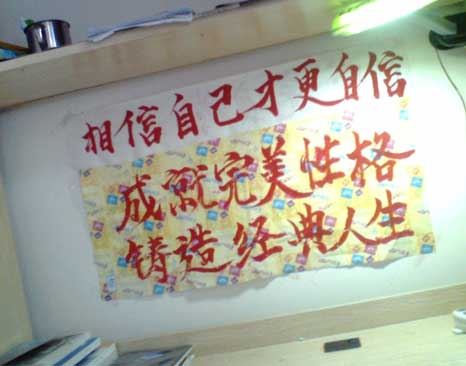 相信自己才更自信
成就完美性格
铸造经典人生